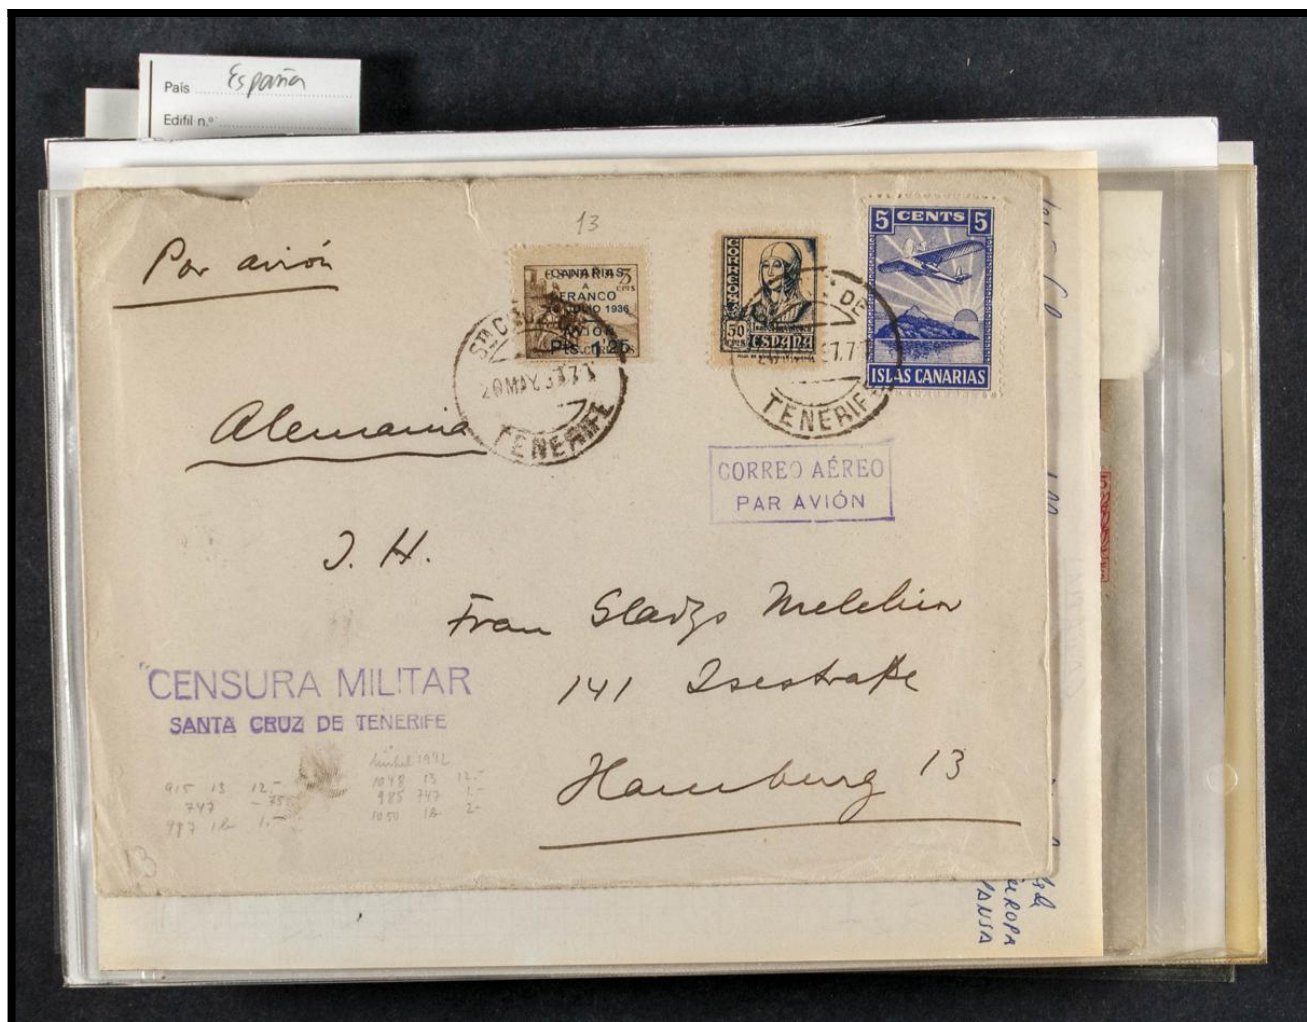 País España
Edifil n.º
Por avión
13
CANARIAS
A
FRANCO
JULIO 1936
Avión
Pts. 1'25
5
CTS
CORREOS
CORREOS
50
CTS
ESPAÑA
5 CENTS 5
ISLAS CANARIAS
20 MAY. 37.
TENERIFE
20 MAY. 37.
TENERIFE
Alemania
CORREO AÉREO
PAR AVIÓN
I. H.
Frau Gladys Melchior
141 Isestraße
Hamburg 13
CENSURA MILITAR
SANTA CRUZ DE TENERIFE
1942
915 13 12.-
747 -75
987 1.-
1048 13 12.-
985 747 1.-
1050 2-
13
EUROPA